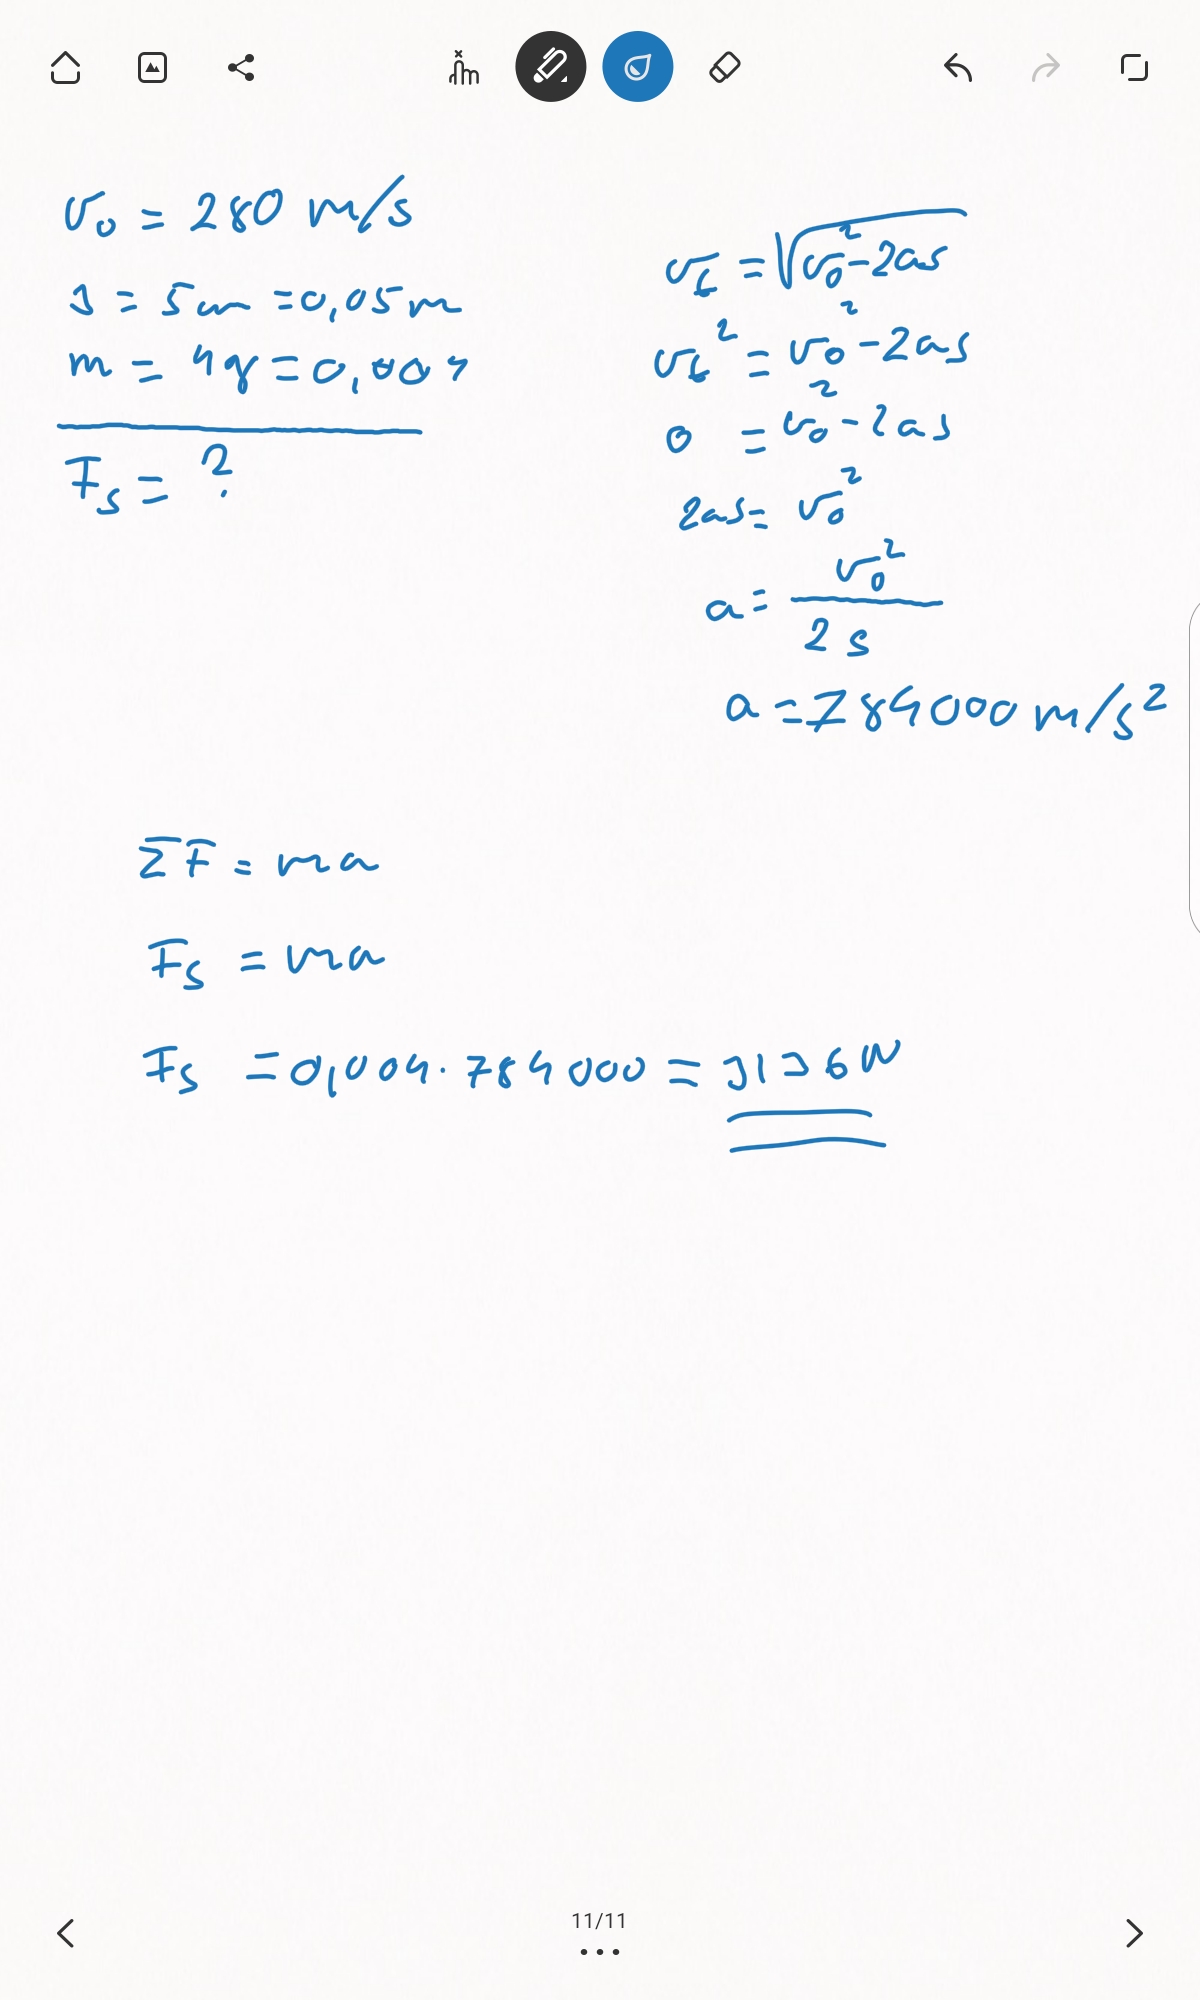 v₀ = 280 m/s
s = 5cm = 0,05m
m = 4g = 0,004
F_s = ?
v_t = √(v₀² - 2as)
v_t² = v₀² - 2as
0 = v₀² - 2as
2as = v₀²
a = v₀² / 2s
a = 784000 m/s²
ΣF = ma
F_s = ma
F_s = 0,004 · 784000 = 3136N
11/11